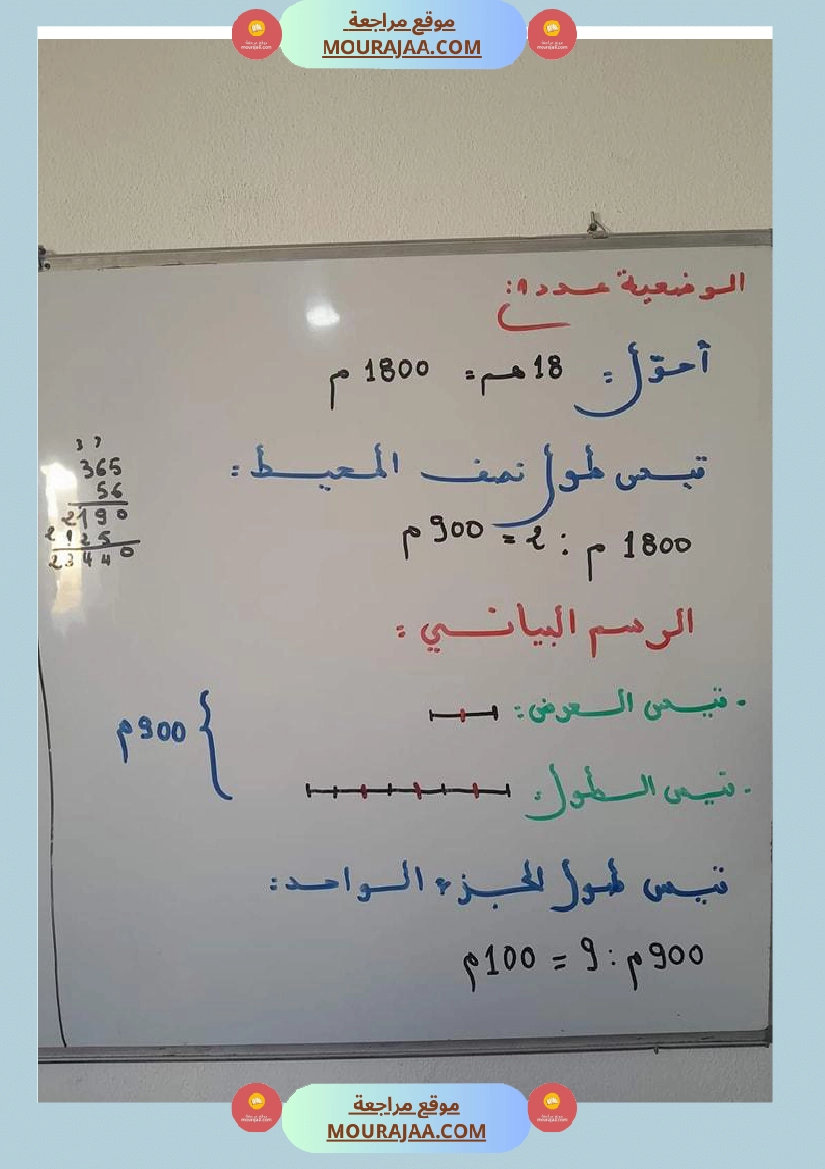 موقع مراجعة
MOURAJAA.COM
الوضعية عدد 1:
أحوّل: 18 هم = 1800 م
قيس طول نصف المحيط:
1800 م : 2 = 900 م
الرسم البياني:
. قيس العرض:
900 م
. قيس الطول:
قيس طول الجزء الواحد:
900 م : 9 = 100 م
3 7
365
56
2190
2 1 2 5
2 3 4 4 0
موقع مراجعة
MOURAJAA.COM